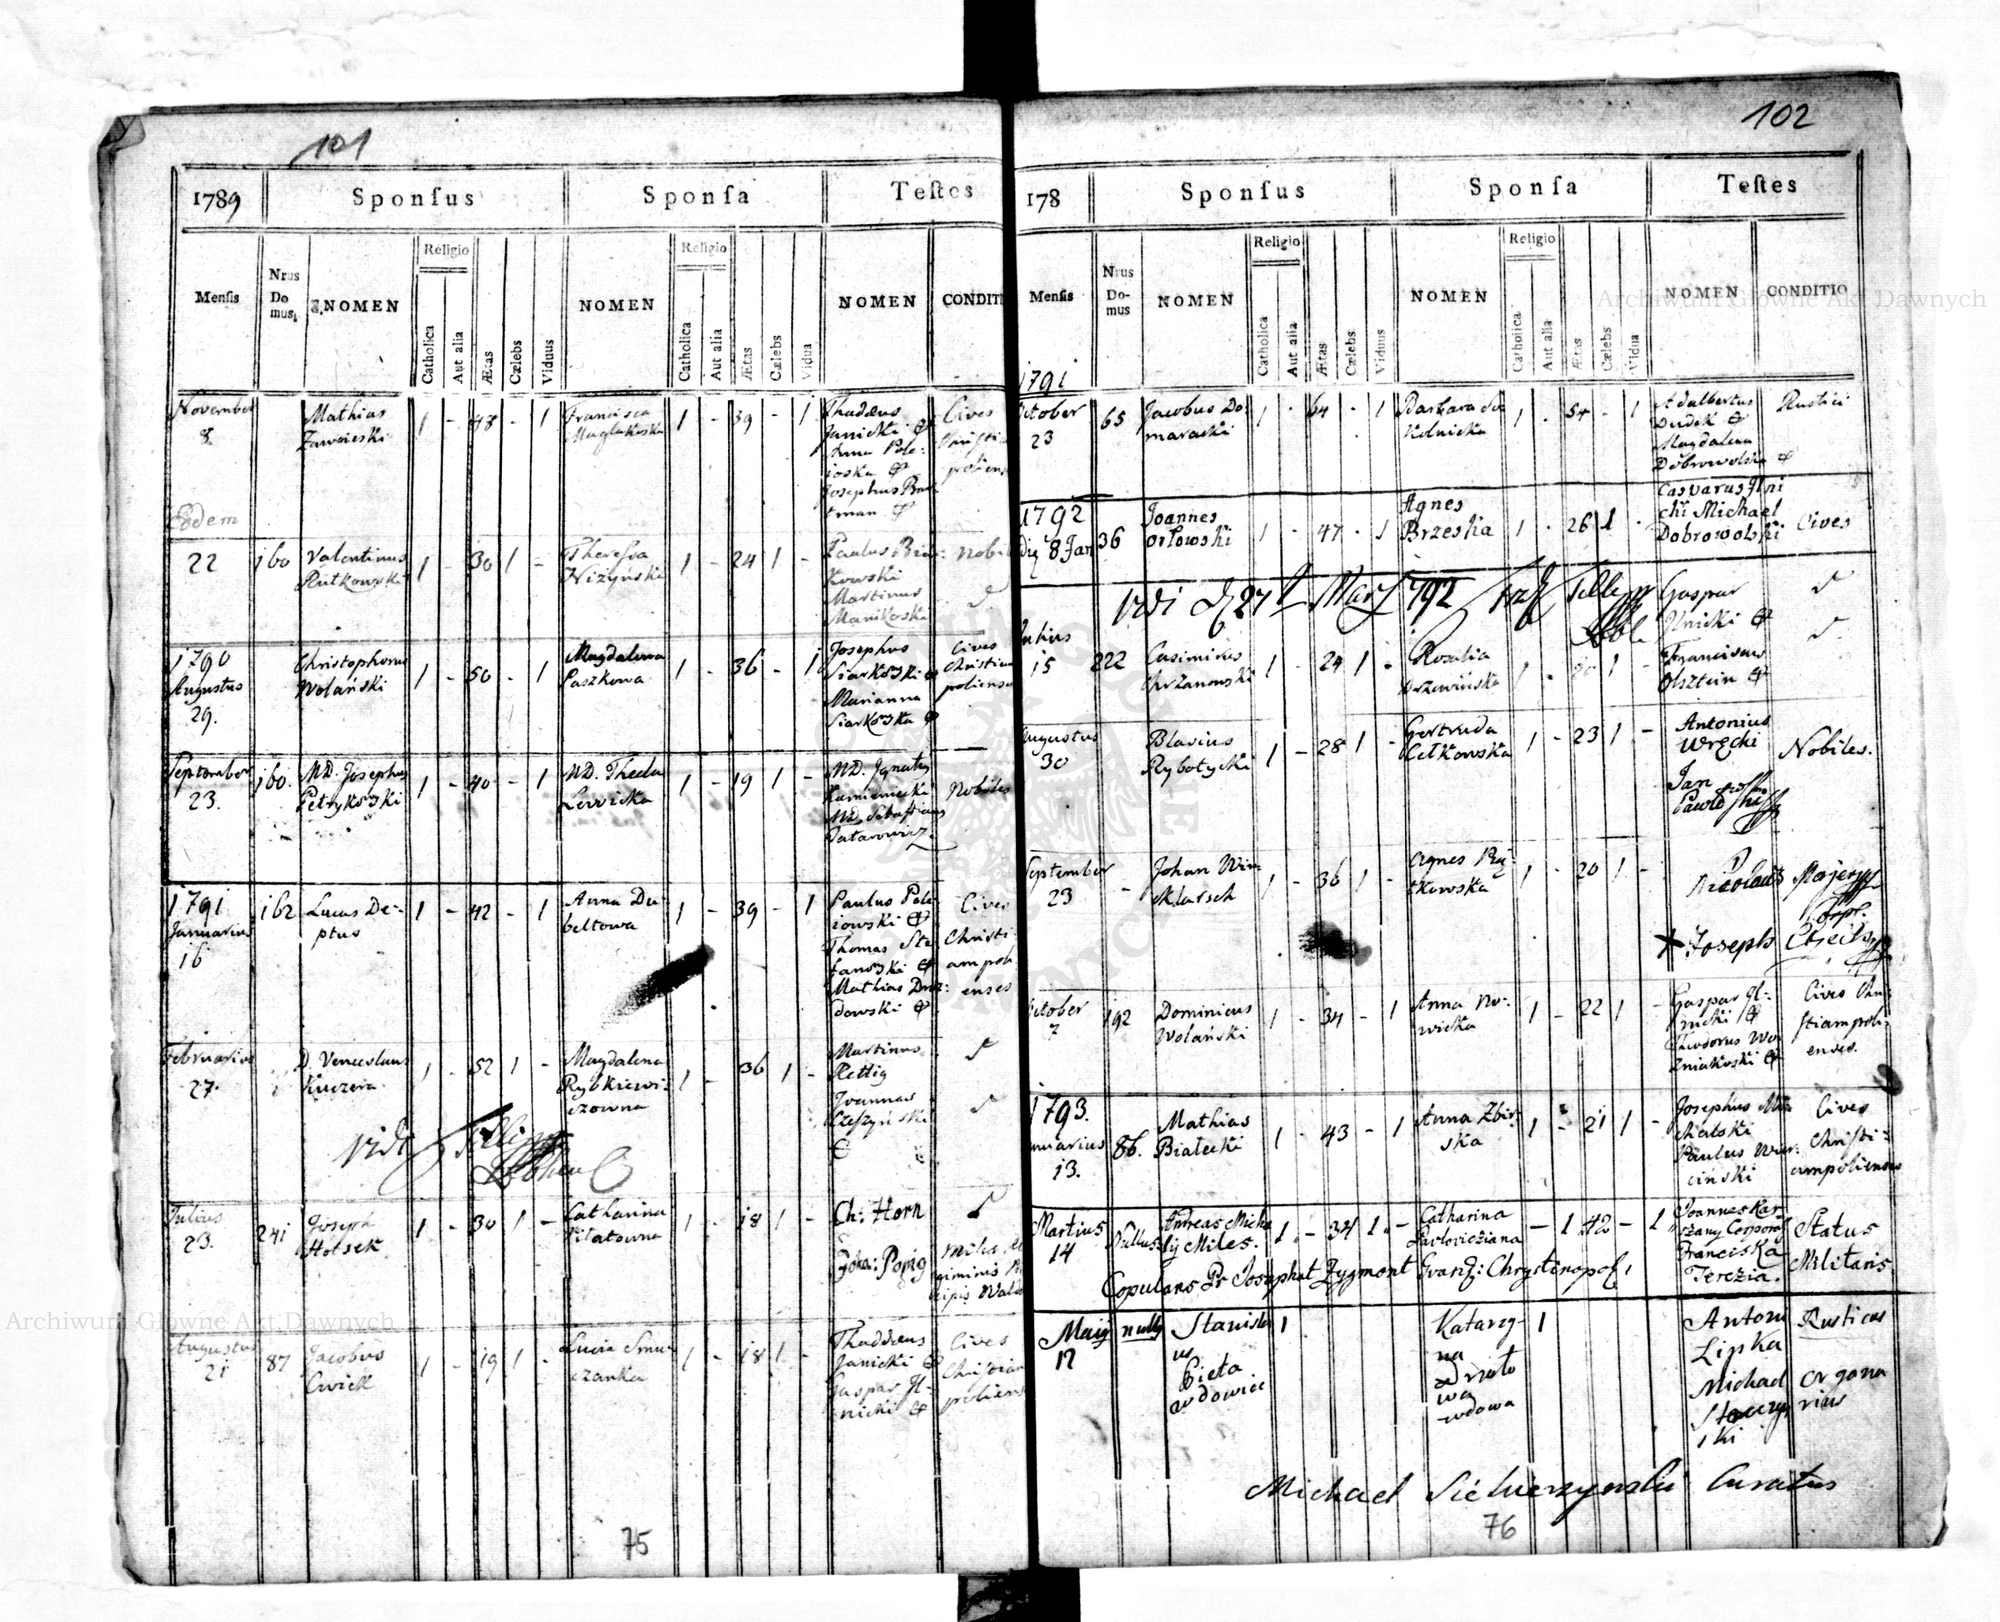 101
1789 Sponſus Sponſa Teſtes
Menſis Nrus Do mus, NOMEN Religio Catholica Aut alia Ætas Cælebs Viduus NOMEN Religio Catholica Aut alia Ætas Cælebs Vidua NOMEN CONDITI
November
8.
Mathias
Zawieski
1 - 48 - 1
Francisca
1 - 39 - 1
Thaddæus
Janicki &
Anna Pole:
ioska &
Josephus
tman &
Cives
Christia
poliens
Eodem
22
160
Valentinus
Rutkowski
1 - 30 1 -
Theressa
Niżyński
1 - 24 1 -
Paulus
kowski
Martinus
Mankoski
Nobil
1790
Augustus
29.
Christophorus
Wolański
1 - 50 - 1
Magdalena
Paszkowa
1 - 36 - 1
Josephus
Siarkoski &
Marianna
Siarkoska &
Cives
Christian
poliense
September
23.
160.
MD. Josephus
Petrykoski
1 - 40 - 1
MD. Thecla
Lewicka
1 - 19 1 -
MD. Ignaty
Kamieniecki
MD. Sebastianus
Tatarowicz
Nobiles
1791
Januarius
16
162
Lucas De-
ptus
1 - 42 - 1
Anna Du-
beltowa
1 - 39 - 1
Paulus Pole-
iowski &
Thomas Ste-
fanoski &
Mathias Dro-
dowski &
Cives
Christi-
ampoli
enses
Februarius
27.
D. Venceslaus
Kuczera
1 - 52 1 -
Magdalena
Rybkiewi-
czowna
1 - 36 1 -
Martinus
Rettig
Joannes
Cieszyński
&
Vidi
Julius
23.
241
Joseph
Hotsek
1 - 30 1 -
Catharina
Pilatowna
1 - 18 1 -
Ch: Horn
Joka: Popig
Augustus
21
87
Jacobus
Cwiek
1 - 19 1 -
Lucia Smu-
czanka
1 - 18 1 -
Thaddæus
Janicki &
Gaspar Il-
nicki &
Cives
Christian
poliens
75
102
178 Sponſus Sponſa Teſtes
Menſis Nrus Do- mus NOMEN Religio Catholica Aut alia Ætas Cælebs Viduus NOMEN Religio Catholica Aut alia Ætas Cælebs Vidua NOMEN CONDITIO
1791
October
23
65
Jacobus Do-
maracki
1 - 64 - 1
Barbara So-
kolnicka
1 - 54 - 1
Adalbertus
Dudek &
Magdalena
Dobrowolska &
Rustici
1792
Die 8 Jan
36
Joannes
Orłowski
1 - 47 - 1
Agnes
Brzeska
1 - 26 1 -
Casparus Ilni
cki Michael
Dobrowolski
Cives
Vidi d 27t Marz 792
Julius
15
222
Casimirus
Chrzanowski
1 - 24 1 -
Rosalia
1 - 20 1 -
Gaspar
Ilnicki &
Franciscus
Olsztein &
Augustus
30
Blasius
Rybotycki
1 - 28 1 -
Gertruda
Celkowska
1 - 23 1 -
Antonius
Wręcki
Jan
Nobiles.
September
23
-
Johan Win-
sklarsch
1 - 36 1 -
Agnes Ru-
tkowska
1 - 20 1 -
Nicolaus
X Joseph
October
7
192
Dominicus
Wolański
1 - 34 - 1
Anna No-
wicka
1 - 22 1 -
Gaspar Il-
nicki &
Theodorus Wo-
źniakoski &
Cives Chri
stiampoli-
enses.
1793.
nuarius
13.
86.
Mathias
Białecki
1 - 43 - 1
Anna Zbir-
ska
1 - 21 1 -
Josephus Mi
chalski
Paulus War-
ciński
Cives
Christi-
ampolienses
Martius
14
Nullus
Andreas Micha
lij Miles.
1. - 34 1. -
Catharina
Pavlovicziana
- 1 42 - 1
Joannes Kar
szany Corporal
Franciska
Terezia.
Status
Militaris
Copulans Pr Josaphat Zygmont Gvardj: Chrystinopol,
Maij
17
nully
Stanisla
us
Bieta
wdowiec
1
Katarzy-
na
wa
wdowa
1
Antoni
Lipka
Michael
ski
Rusticus
Organa
rius
Michael Siekierzynski Curatus
76
Archiwum Główne Akt Dawnych
Archiwum Główne Akt Dawnych